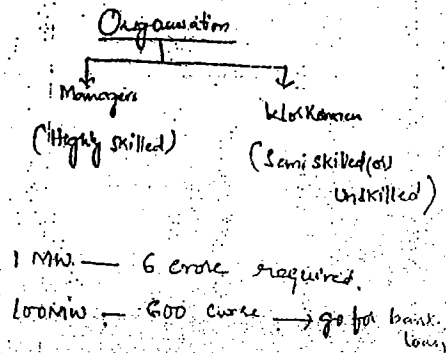 Organisation
Managers Workmen
(Highly skilled) (Semi skilled (or)
Unskilled)
1 MW. — 6 crore required.
100MW — 600 crore → go for bank
loan